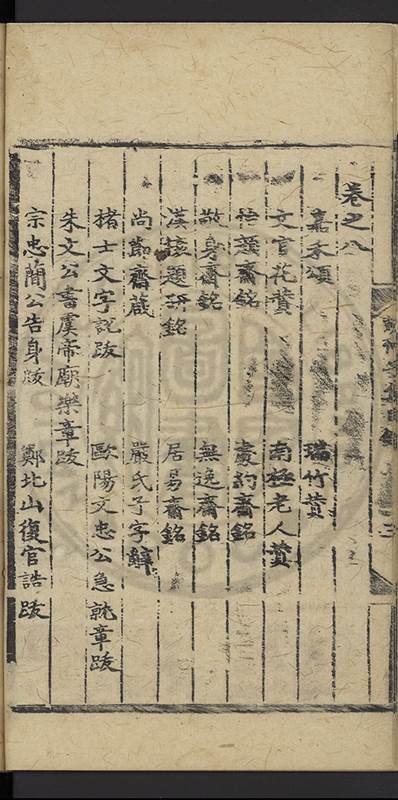 卷之八
嘉禾頌　瑞竹贊
文官花贊　南極老人贊
悟須齋銘　素約齋銘
敬身齋銘　無逸齋銘
漢核題研銘　居易齋銘
尚節齋箴　嚴氏子字辭
楮士文字說跋　歐陽文忠公急就章跋
朱文公書虞帝廟樂章跋
宗忠簡公告身跋　鄭北山復官誥跋